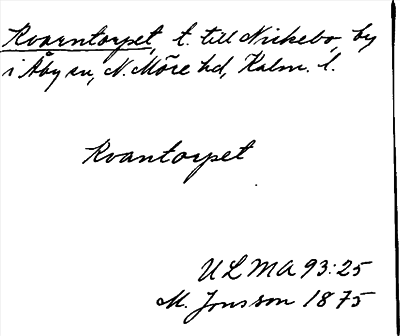 Kvarntorpet, t. till Nickebo, by
i Åby sn, N. Möre hd, Kalm. l.
Kvantorpet
ULMA 93:25
M. Jonsson 1875